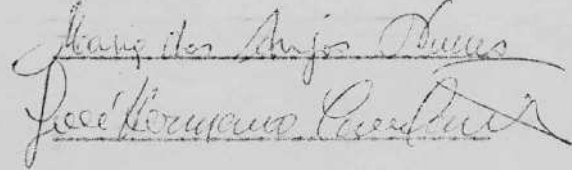 Maria dos Anjos Nunes
José Hermano